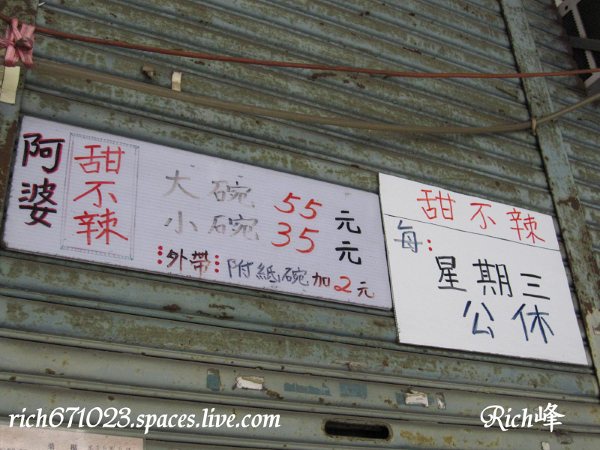 阿婆
甜不辣
大碗 55 元
小碗 35 元
外帶:附紙碗加2元
甜不辣
每:
星期三
公休
rich671023.spaces.live.com
Rich峰